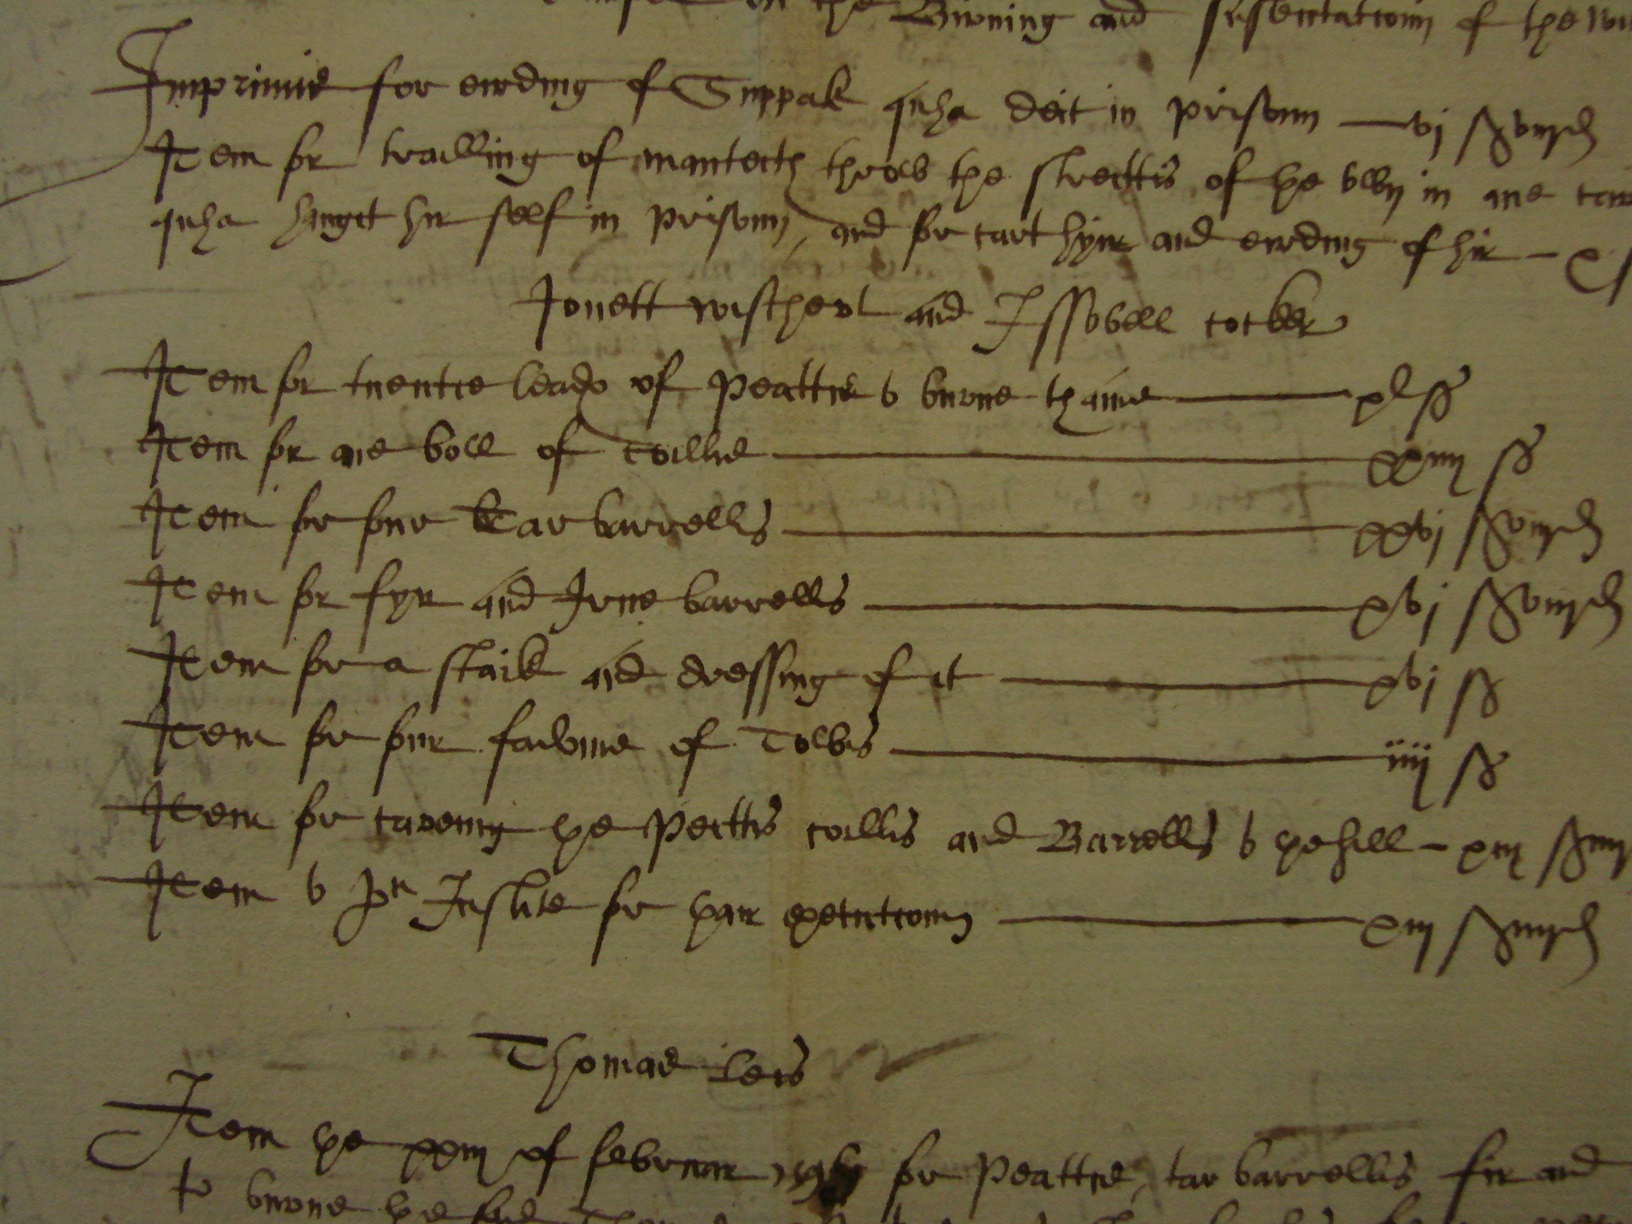 on the Birning and sustentatioun of the
Imprimis for eirding of Suppak quha deit in prisoun — vj s viij d
Item for trailling of manteith throw the streittis of þe toun in ane cart
quha hangit hir self in prisoun, and for cart hyir and eirding of hir — x s
Jonett wischert and Issobell cocker
Item for tuentie leads of Peattis to burne thame — xl s
Item for ane boll of coillis — xxiiij s
Item for four Tar barrellis — xxvj s viij d
Item for fyr and Irne barrellis — xvj s viij d
Item for a staik and dressing of it — xvj s
Item for four fadome of Towis — iiij s
Item for careing þe Peittis coillis and Barrellis to þe hill — xiij s iiij
Item to Jon Justice for þair executioun — xiij s iiij d
Thomas Leis
Item þe xxiij of februar for Peattis, tar barrellis fir and
to burne þe said